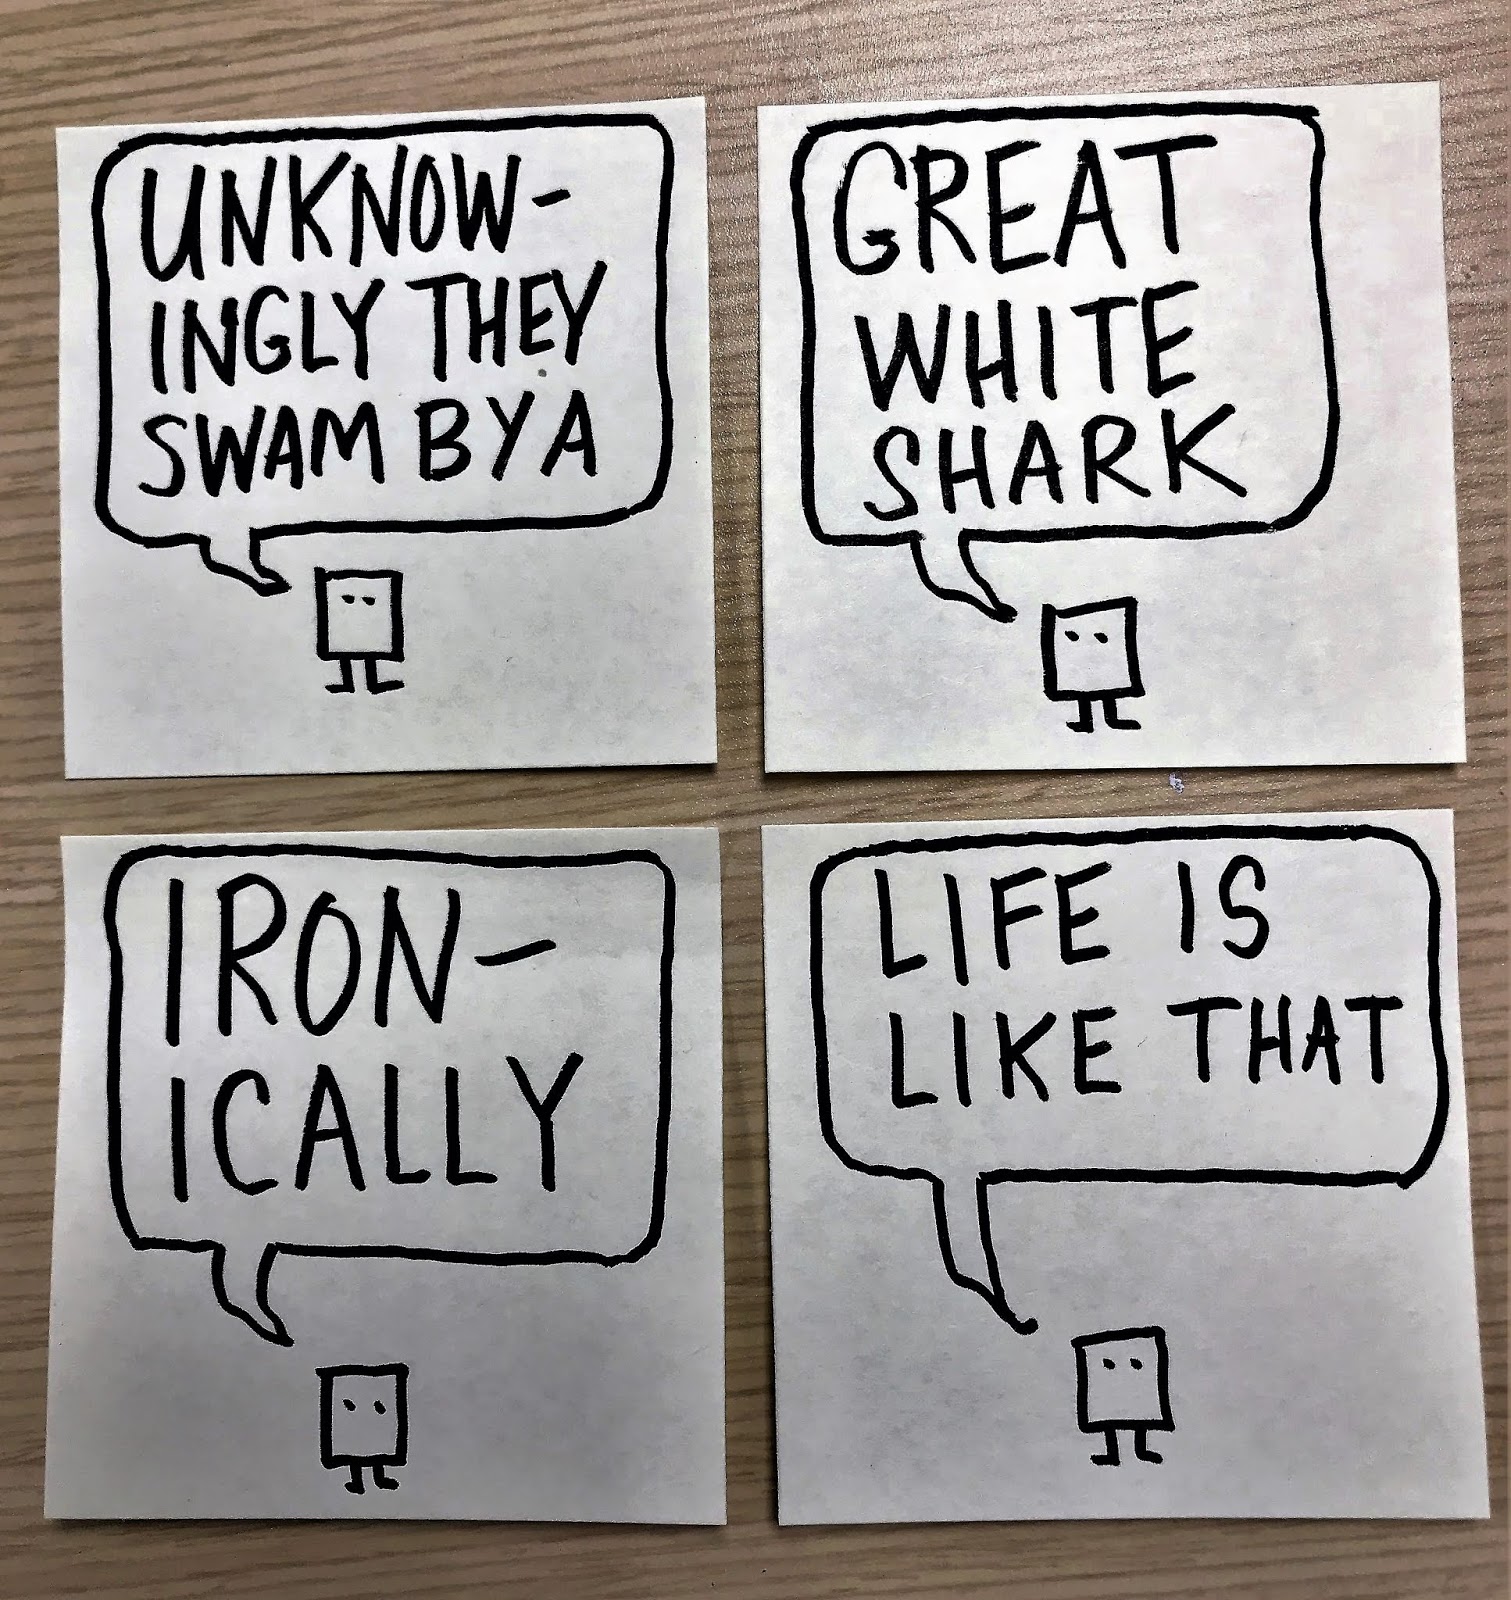 UNKNOW-
INGLY THEY
SWAM BY A
GREAT
WHITE
SHARK
IRON-
ICALLY
LIFE IS
LIKE THAT